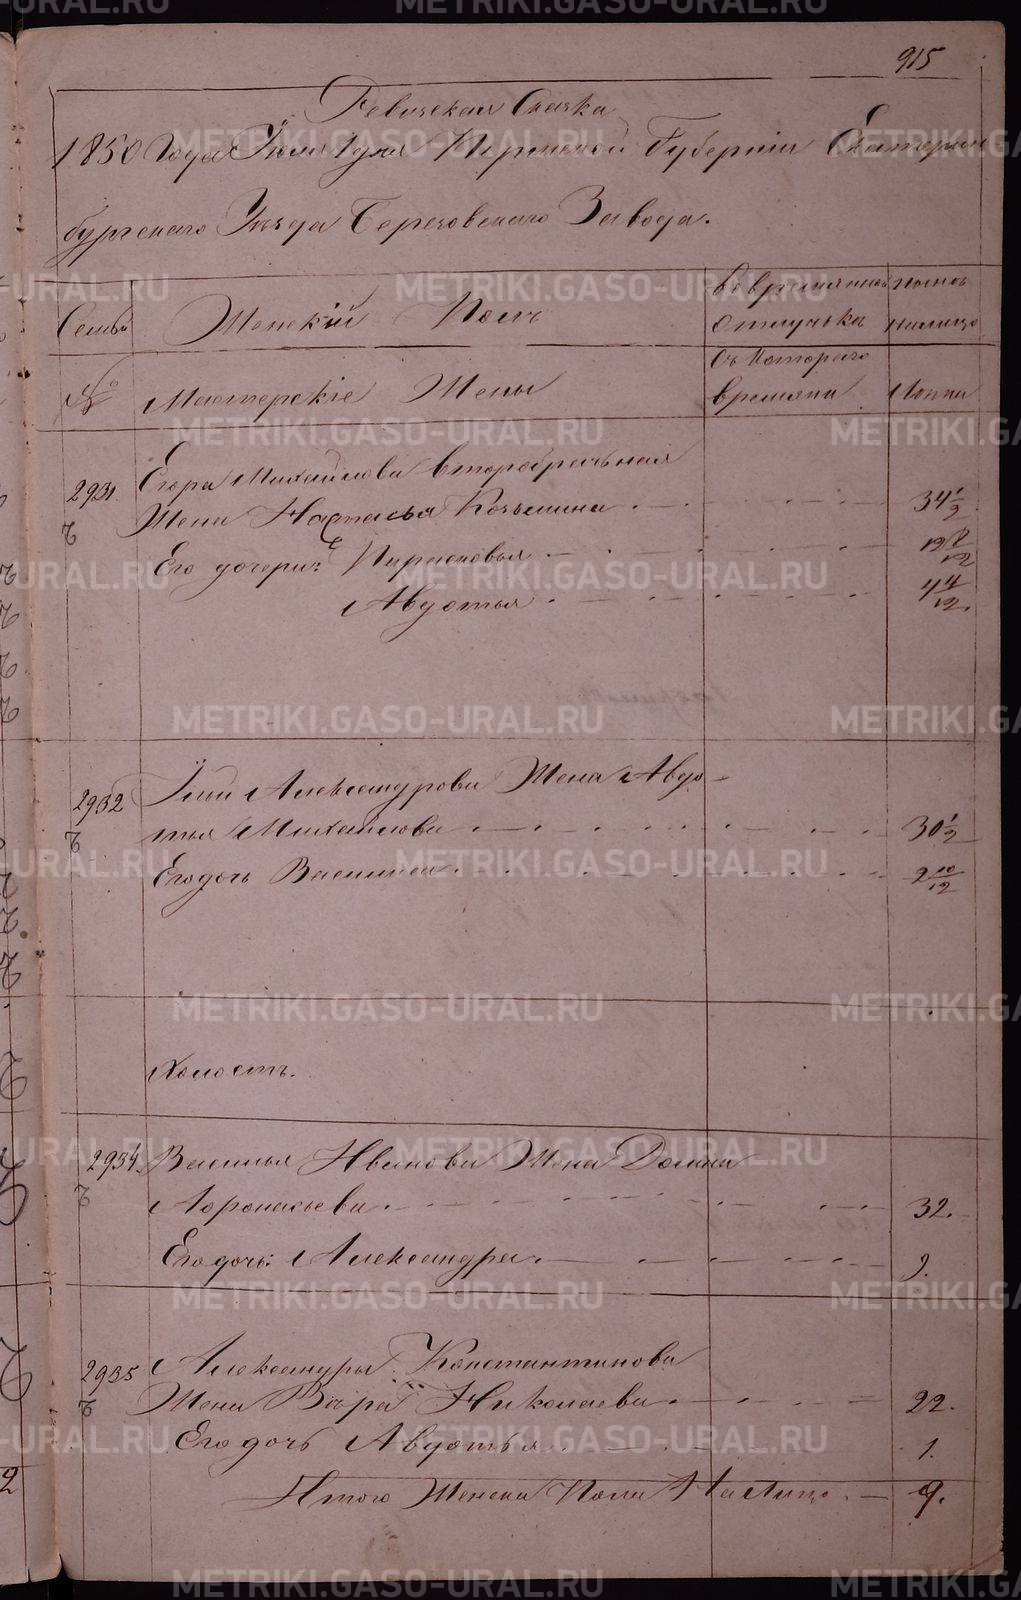 915
Ревизская Сказка
1850 Года Июля дня Пермской Губернии Екатерин
бургского Уезда Березовского Завода.
Семьи Женский Полъ Во временной отлучькъ Ныне на лицо
№ Мастерскіе Жены Съ Котораго времяни Лѣта
2931 Егора Михайлова второбрачьная
Жена Настасья Козьмина 34 1/2
Его дочери: Парасковья 19 8/12
Авдотья 4 4/12
2932 Ильи Александрова Жена Авдо-
тья Михайлова 30 1/2
Его дочь Василиса 2 10/12
Холостъ.
2934. Василья Иванова Жена Домна
Афонасьева 32.
Его дочь: Александра 9.
2935 Александра Константинова
Жена Вѣра Николаева 22.
Его дочь Авдотья 1.
Итого Женска Пола На Лицо 9.
METRIKI.GASO-URAL.RU